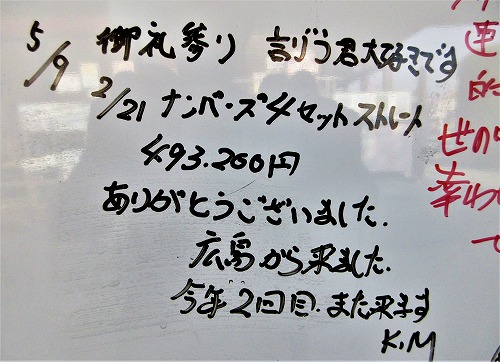 5/9 御礼参り 言ぞう君大好きです
2/21 ナンバーズ4セットストレート
493.200円
ありがとうございました.
広島から来ました.
今年2回目.また来ます
K.M
連
的
せの
幸わせ
で